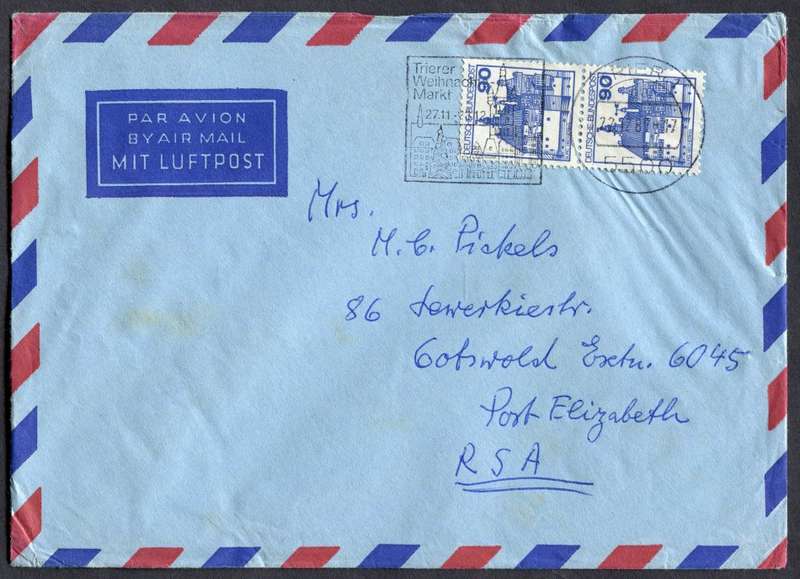 Trierer
Weihnachts
Markt
27.11.
90
DEUTSCHE BUNDESPOST
90
DEUTSCHE BUNDESPOST
PAR AVION
BY AIR MAIL
MIT LUFTPOST
Mrs.
M. C. Pickels
86
Cotswold Extn. 6045
Port Elizabeth
RSA